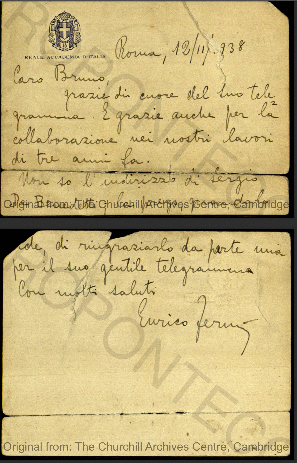 REALE ACCADEMIA D'ITALIA
Roma, 12/11/938
Caro Bruno,
grazie di cuore del suo tele
gramma. E grazie anche per la
collaborazione nei nostri lavori
di tre anni fa.
Non so l'indirizzo di Sergio
De Benedetti. La prego, se
Original from: The Churchill Archives Centre, Cambridge
di ringraziarlo da parte mia
per il suo gentile telegramma
Con molti saluti
Enrico Fermi
Original from: The Churchill Archives Centre, Cambridge
ROPONTEC
ROPONTEC